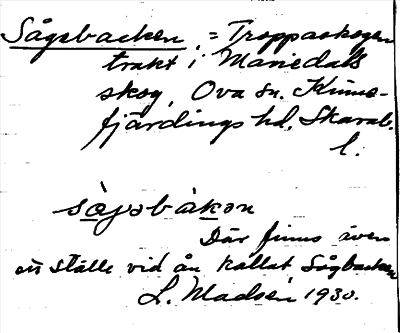 Sågsbacken, = Troppaskogen
trakt i Mariedals
skog, Ova sn. Kinne-
fjärdings hd. Skarab.
l.
sågsbåkən
Där finns även
ett ställe vid ån kallat Sågbacken
L. Madsén 1930.